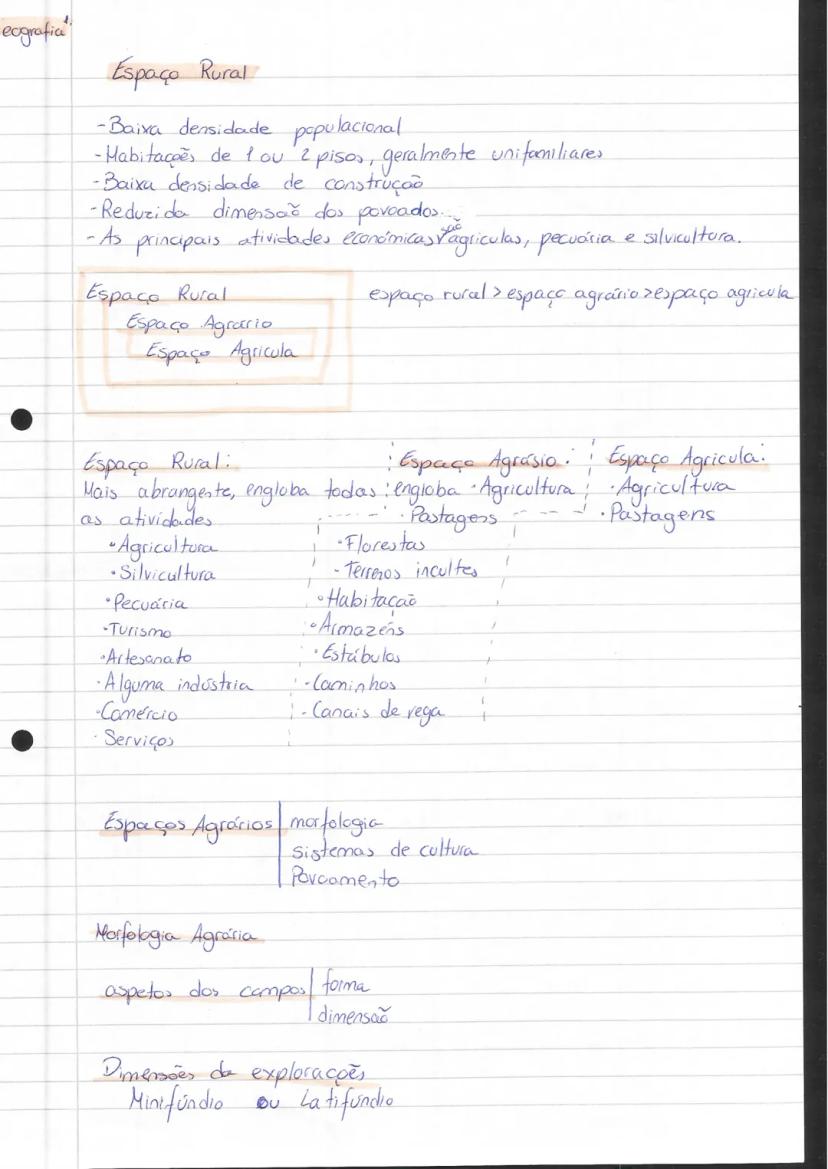 eografia
Espaço Rural
- Baixa densidade populacional
- Habitações de 1 ou 2 pisos, geralmente unifamiliares
- Baixa densidade de construção
- Reduzida dimensão dos povoados.
- As principais atividades económicas são agriculas, pecuária e silvicultura.
Espaço Rural
espaço rural > espaço agrário > espaço agricula
Espaço Agrário
Espaço Agricula
Espaço Rural:
Mais abrangente, engloba todas
as atividades
• Agricultura
• Silvicultura
• Pecuária
• Turismo
• Artesanato
• Alguma indústria
• Comércio
• Serviços
Espaço Agrásio:
engloba • Agricultura
• Pastagens
• Florestas
- Terrenos incultes
• Habitação
• Armazéns
• Estábulos
• Caminhos
• Canais de rega
Espaço Agricula:
• Agricultura
• Pastagens
Espaços Agrários
morfologia
sistemas de cultura
Povoamento
Morfologia Agrária
aspetos dos campos
forma
dimensão
Dimensões da explorações
Minifúndio ou Latifúndio